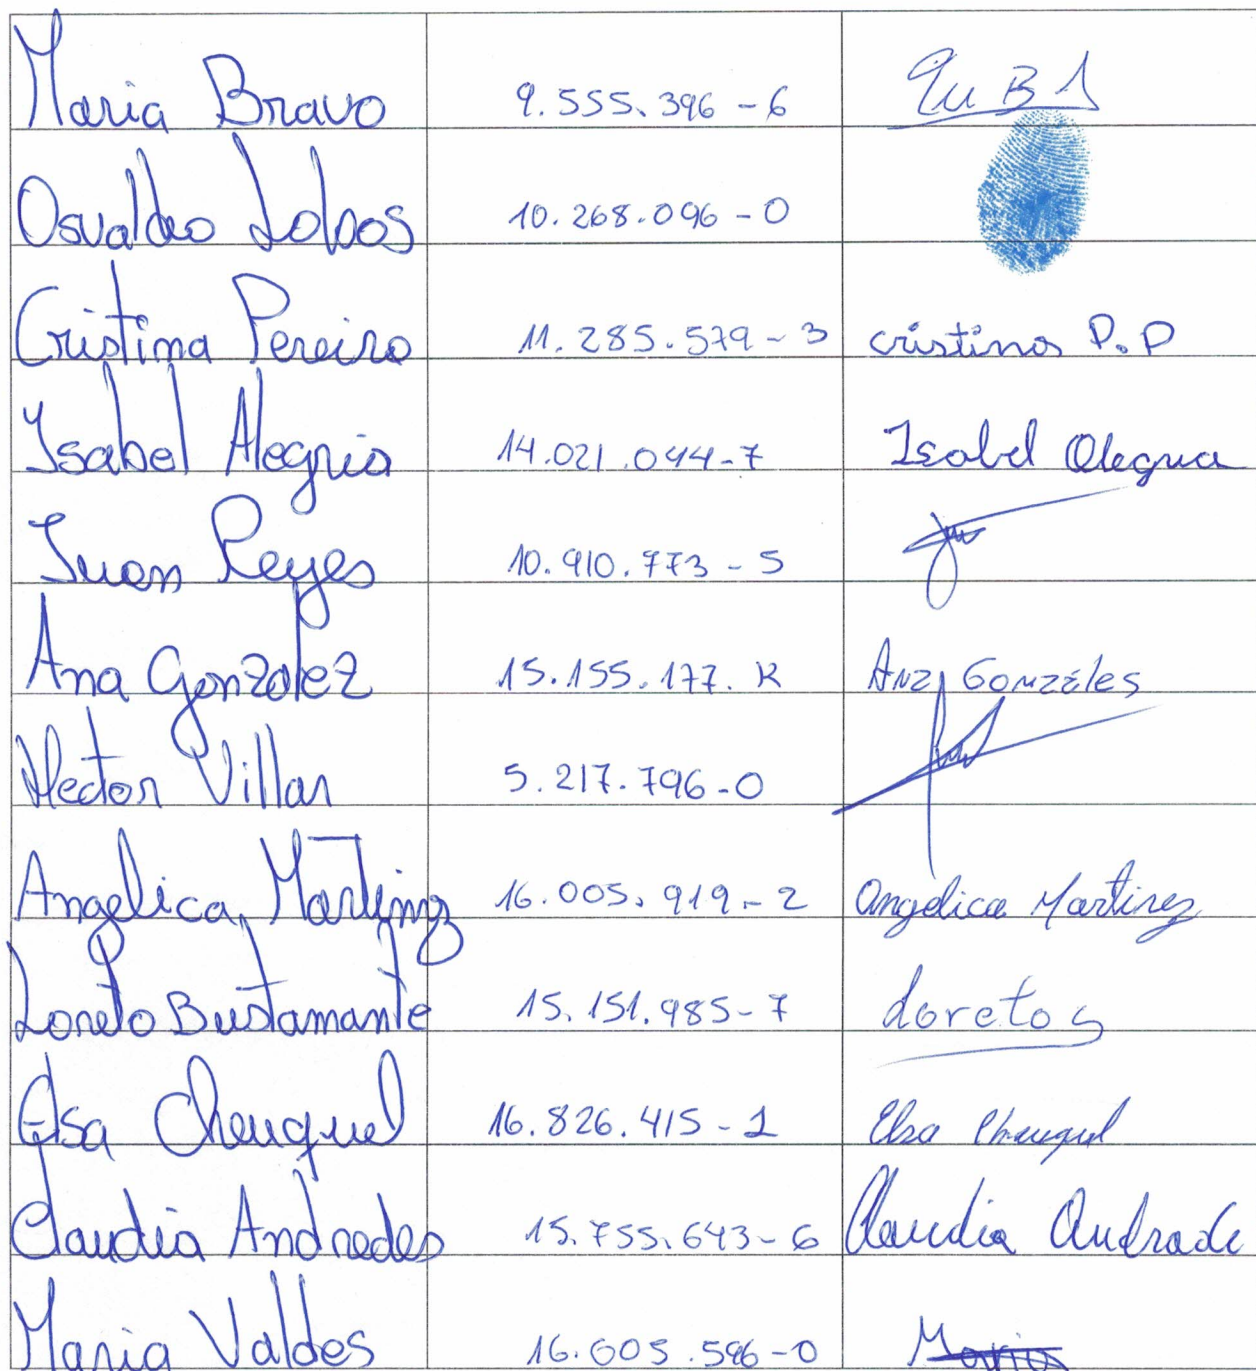 Maria Bravo 9.555.396-6
Osvaldo Lobos 10.268.096-0
Cristina Pereira 11.285.579-3 cristina P.P
Isabel Alegria 14.021.044-7 Isabel Alegria
Juan Reyes 10.910.773-5
Ana Gonzalez 15.155.177.K Ana Gonzáles
Hector Villar 5.217.796-0
Angelica Martinez 16.005.919-2 Angelica Martinez
Loreto Bustamante 15.151.985-7 Loreto
Elsa Cheuquel 16.826.415-1 Elsa Cheuquel
Claudia Andrades 15.755.643-6 Claudia Andrade
Maria Valdes 16.605.596-0 Maria